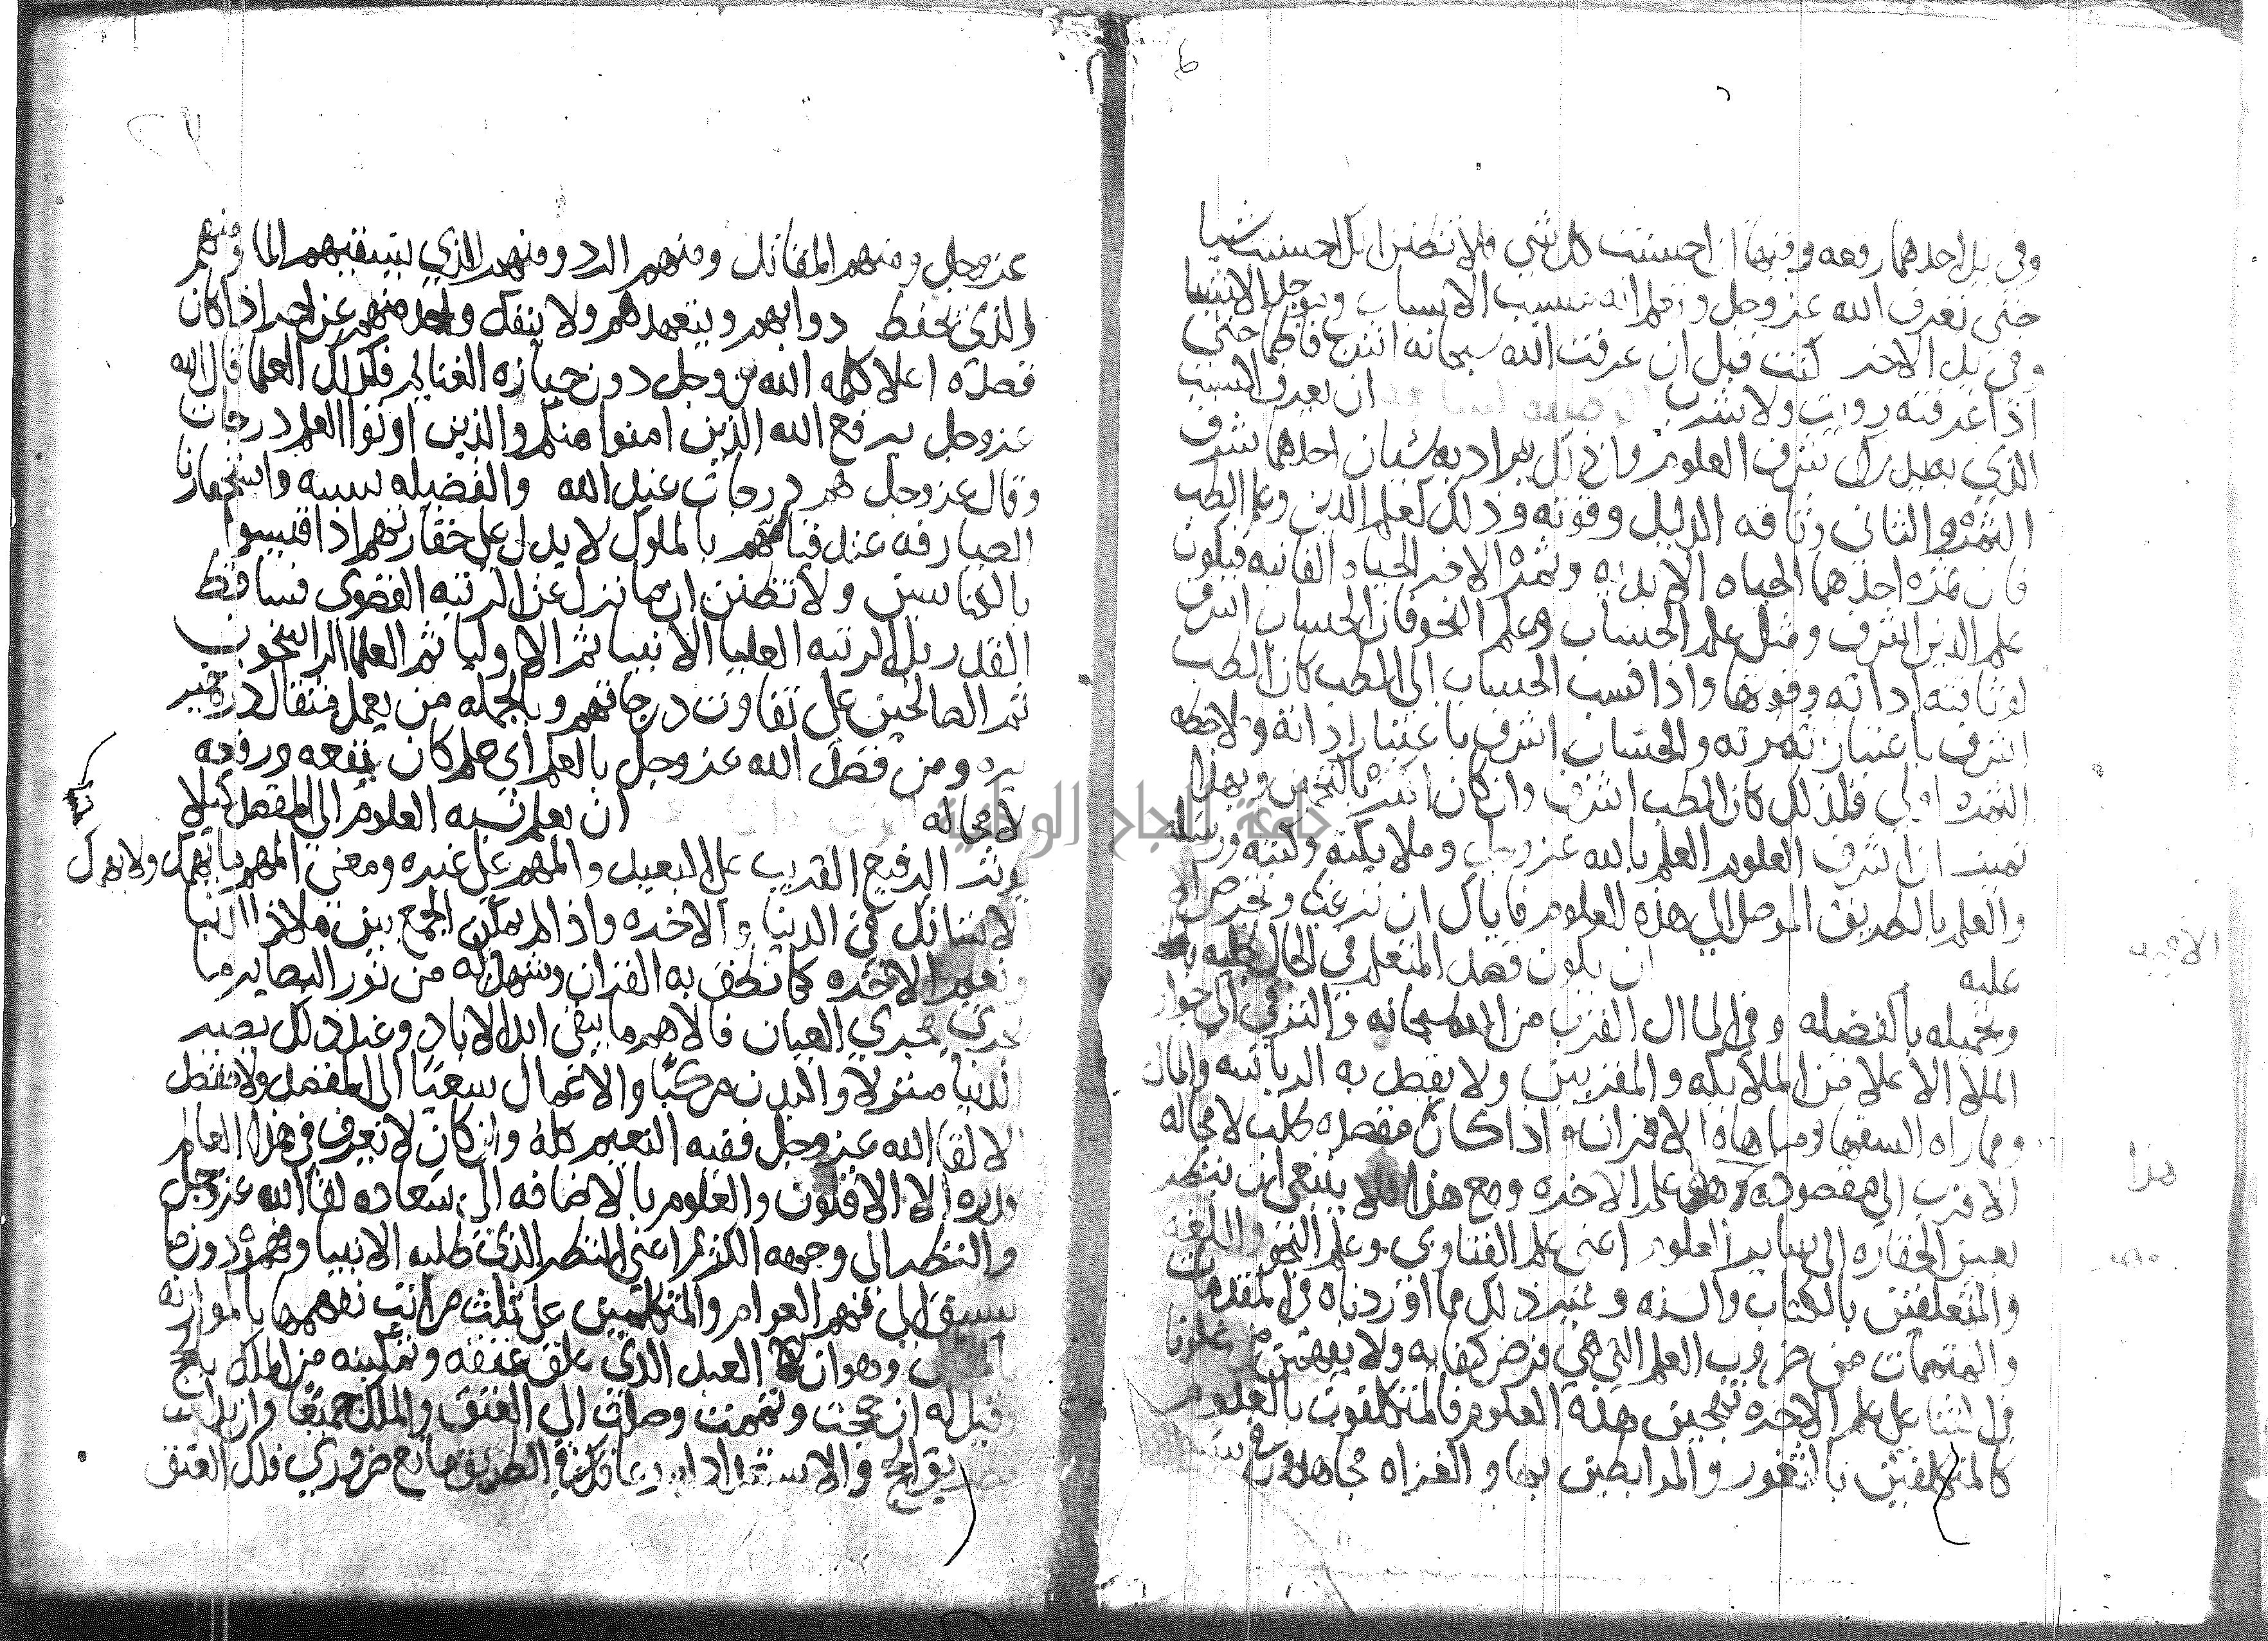 وفي يد احدهما رقعه وفيها ان احسنت كل شي فلا تظنن انك احسنت شيا
حتى تعرف الله عز وجل وتعلم انه مسبب الاسباب وموجد الاشيا
وفي يد الاخر كنت قبل ان عرفت الله سبحانه اشرب فاظما حتى
اذا عرفته رويت ولا شرب ان يعرف السبب
الذي به يدرك شرف العلوم وان ذلك يراد به شيان احدهما شرف
الثمره والثاني وثاقه الدليل وقوته وذلك كعلم الدين وعلم الطب
فان ثمره احدهما الحياه الابديه وثمره الاخر الحياه الفانيه فيكون
علم الدين اشرف ومثل علم الحساب وعلم النجوم فان الحساب اشرف
لوثاقته ادلته وقوتها واذا نسب الحساب الى الطب كان الطب
اشرف باعتبار ثمرته والحساب اشرف باعتبار ادلته وملاحظه
الثمره اولي فلذلك كان الطب اشرف وان كان اكثره بالتخمين وبهذا
تبين ان اشرف العلوم العلم بالله عز وجل وملايكته وكتبه ورسله
والعلم بالطريق الموصل الي هذه العلوم فاياك ان ترغب وتحرص الا
عليه ان يكون قصد المتعلم في الحال تحليه باطنه
وتجميله بالفضيله وفي المال القرب من الله سبحانه والترقي الي جوار
الملا الاعلا من الملايكه والمقربين ولا يقصد به الرياسه والمال
ومماراه السفها ومباهاه الاقران واذا كان مقصده كلب لا محاله
الاقرب الي مقصوده وهو علم الاخره ومع هذا فلا ينبغي ان ينظر
بعين الحقاره الى ساير العلوم اعني علم الفتاوي وعلم النحو واللغه
والمتعلقين بالكتاب والسنه وغير ذلك مما اوردناه في المقدمات
والمتممات من ضروب العلم التي هي فرض كفايه ولا يفهمن من غلونا
في الثنا على علم الاخره تهجين هذه العلوم فالمتكلفون بالعلوم
كالمتكلفين بالثغور والمرابطين بها والغزاه مجاهدون في سبيل
الاقرب
هذا
عز وجل ومنهم المقاتل ومنهم الرد ومنهم الذي يسقيهم الما ومنهم
الذي يحفظ دوابهم ويتعهدهم ولا ينفك واحد منهم عن اجر اذا كان
قصده اعلا كلمه الله عز وجل دون حيازه الغنايم فكذلك العلما قال الله
عز وجل يرفع الله الذين امنوا منكم والذين اوتوا العلم درجات
وقال عز وجل هم درجات عند الله والفضيله نسبيه واستحقارنا
الصيارفه عند قياسهم بالملوك لا يدل على حقارتهم اذا اقيسوا
بالكناسين ولا تظنن ان ما نزل عن الرتبه القصوى فساقط
القدر بل الرتبه العليا الانبيا ثم الاوليا ثم العلما الراسخون
ثم الصالحين على تفاوت درجاتهم وبالجمله من يعمل مثقال ذره خيرا
يره ومن قصد الله عز وجل بالعلم اي علم كان ينفعه ورفعه
لا محاله ان يعلم نسبه العلوم الي المقصد كيلا
يوثر الرفيع القريب على البعيد والمهم على غيره ومعنى المهم ما يهمك ولا يهمك
الا شانك في الدنيا والاخره واذا لم يمكن الجمع بين ملاذ الدنيا
ونعيم الاخره كما نطق به القران وشهد له من نور البصاير ما
يجري مجري العيان فالاهم ما يبقى ابد الاباد وعند ذلك تصير
الدنيا منزلا والبدن مركبا والاعمال سعيا الى المقصد ولا مقصد
الا لقا الله عز وجل ففيه النعيم كله وان كان لا تعرف في هذا العالم
قدره الا الاقلون والعلوم بالاضافه الي سعاده لقا الله عز وجل
والنظر الي وجهه الكريم اعني النظر الذي طلبه الانبيا وفهموه دون ما
يسبق الي فهم العوام والمتكلمين على ثلث مراتب تفهمها بالموازنه
وهو ان العبد الذي علق عتقه وتمكينه من الملك بالحج
وقيل له ان حججت وتممت وصلت الي العتق والملك جميعا وان ابتدات
بطريق الحج والاستعداد له وعاقك في الطريق مانع ضروري فلك العتق